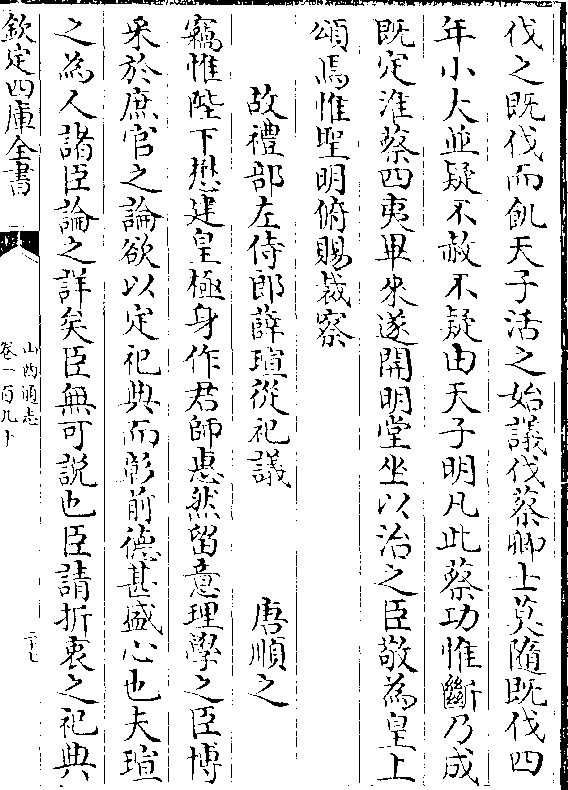 伐之既伐而飢天子活之始議伐蔡卿士莫隨既伐四
年小大並疑不赦不疑由天子明凡此蔡功惟斷乃成
既定淮蔡四夷畢來遂開明堂坐以治之臣敬為皇上
頌焉惟聖明俯賜裁察
故禮部左侍郎薛瑄從祀議 唐順之
竊惟陛下懋建皇極身作君師惠然留意理學之臣博
采於庶官之論欲以定祀典而彰前德甚盛心也夫瑄
之為人諸臣論之詳矣臣無可説也臣請折衷之祀典
欽定四庫全書
山西通志
卷一百九十
二十七